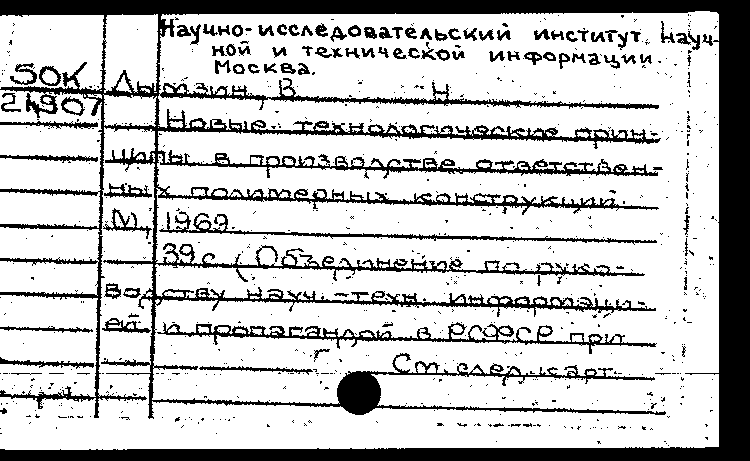 Научно-исследовательский институт науч-
ной и технической информации.
Москва.
50К
21907
В Н
Новые технологические прин-
ципы в производстве ответствен-
ных полимерных конструкций.
М., 1969.
39с (Объединение по руко-
водству науч.-техн. информаци-
ей и пропагандой в РСФСР при
См. след. карт.